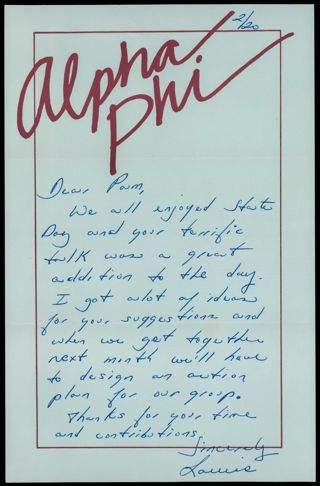 2/20
Alpha
Phi
Dear Pam,
We all enjoyed State
Day and your terrific
talk was a great
addition to the day.
I got alot of ideas
for your suggestions and
when we get together
next month we'll have
to design an action
plan for our group.
Thanks for your time
and contributions.
Sincerely